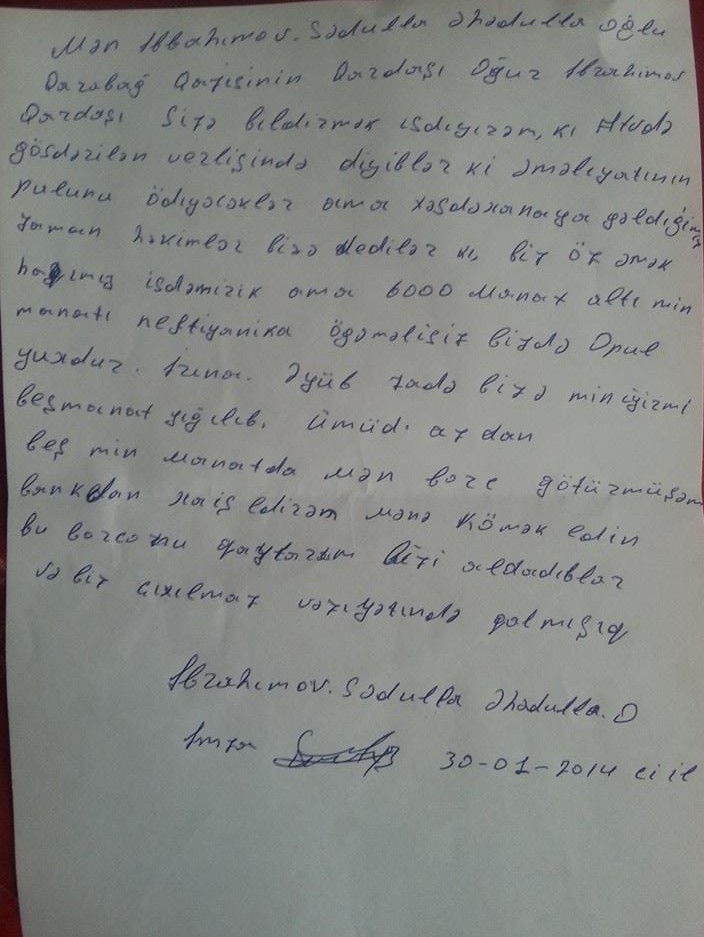 Mən İbrahimov. Sədulla Əhədulla oğlu
Qarabağ Qazisinin Qardaşı Oğuz İbrahimov
Qardaşı Sizə bildirmək isdiyirəm, ki Atvdə
gösdərilən verlişində diyiblər ki əməliyatının
pulunu ödiyəcəklər ama xəsdəxanaya gəldiğimiz
zaman həkimlər bizə dedilər ki, biz öz əmək
haqımız isdəmirik ama 6000 Manat altı min
manatı neftiyanika ögəməlisiz bizdə Opul
yuxdur. İrina. Əyüb zadə bizə min iyirmi
beşmanat yığılıb. Ümüd. azdan
beş min Manatda Mən borc götürmüşəm
bankdan xaiş edirəm Mənə Kömək edin
bu borcomu qaytarım bizi aldadıblar
və biz çıxılmaz vəziyətində qalmışıq
İbrahimov. Sədulla Əhədulla. O
İmza 30-01-2014 ci il